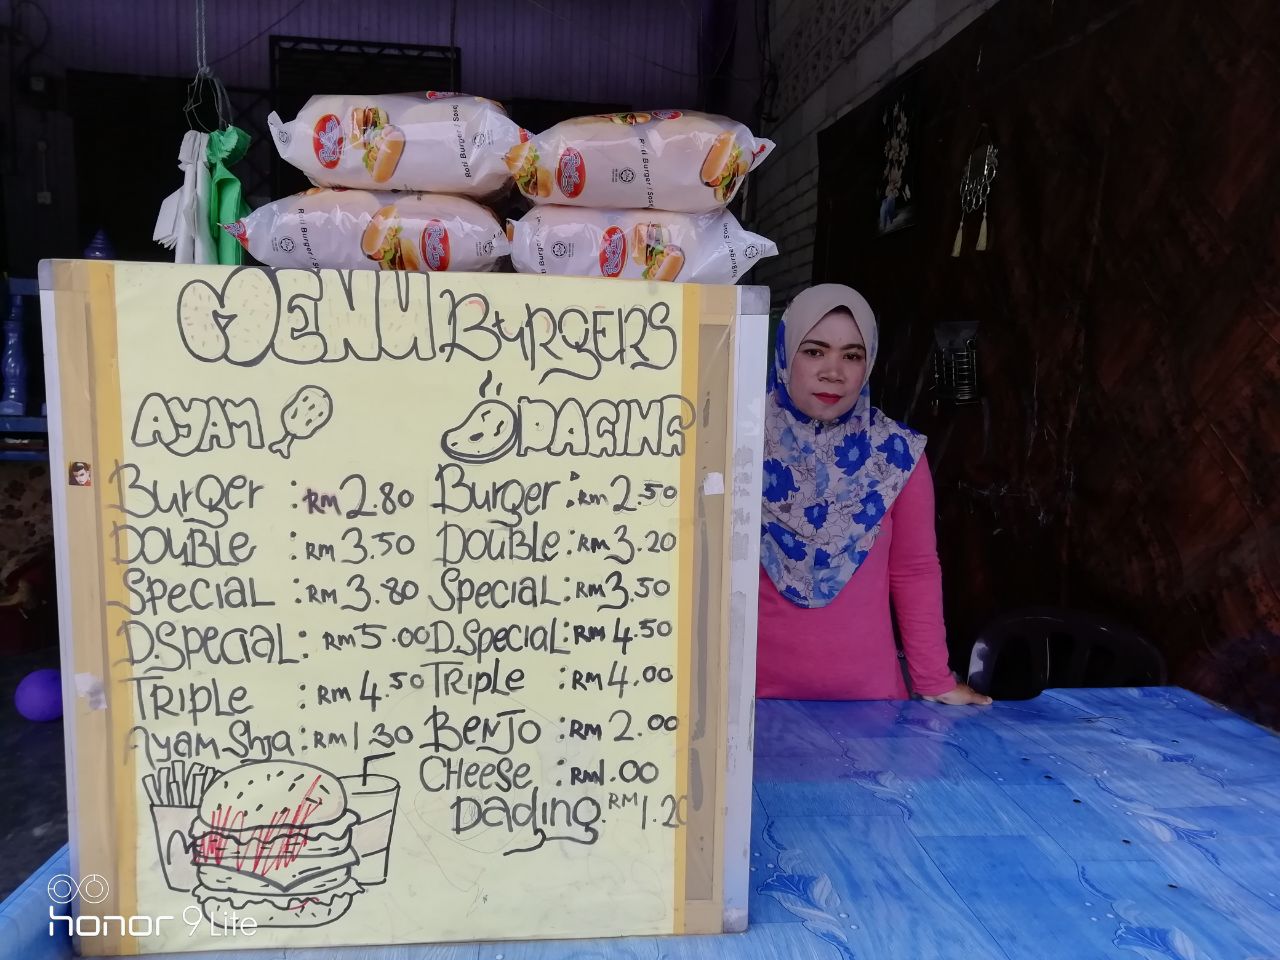 Roti Burger / Sosej
Roti Burger / Sosej
Roti Burger / S
Roti Burger /
MENU BURGERS
AYAM
DAGING
Burger : RM 2.80
Burger : RM 2.50
DOUBLE : RM 3.50
DOUBLE : RM 3.20
Special : RM 3.80
Special : RM 3.50
D.Special : RM 5.00
D.Special : RM 4.50
TRIPLE : RM 4.50
TRIPLE : RM 4.00
Ayam Shja : RM 1.30
BENJO : RM 2.00
CHEESE : RM 1.00
Dading RM 1.20
honor 9 Lite